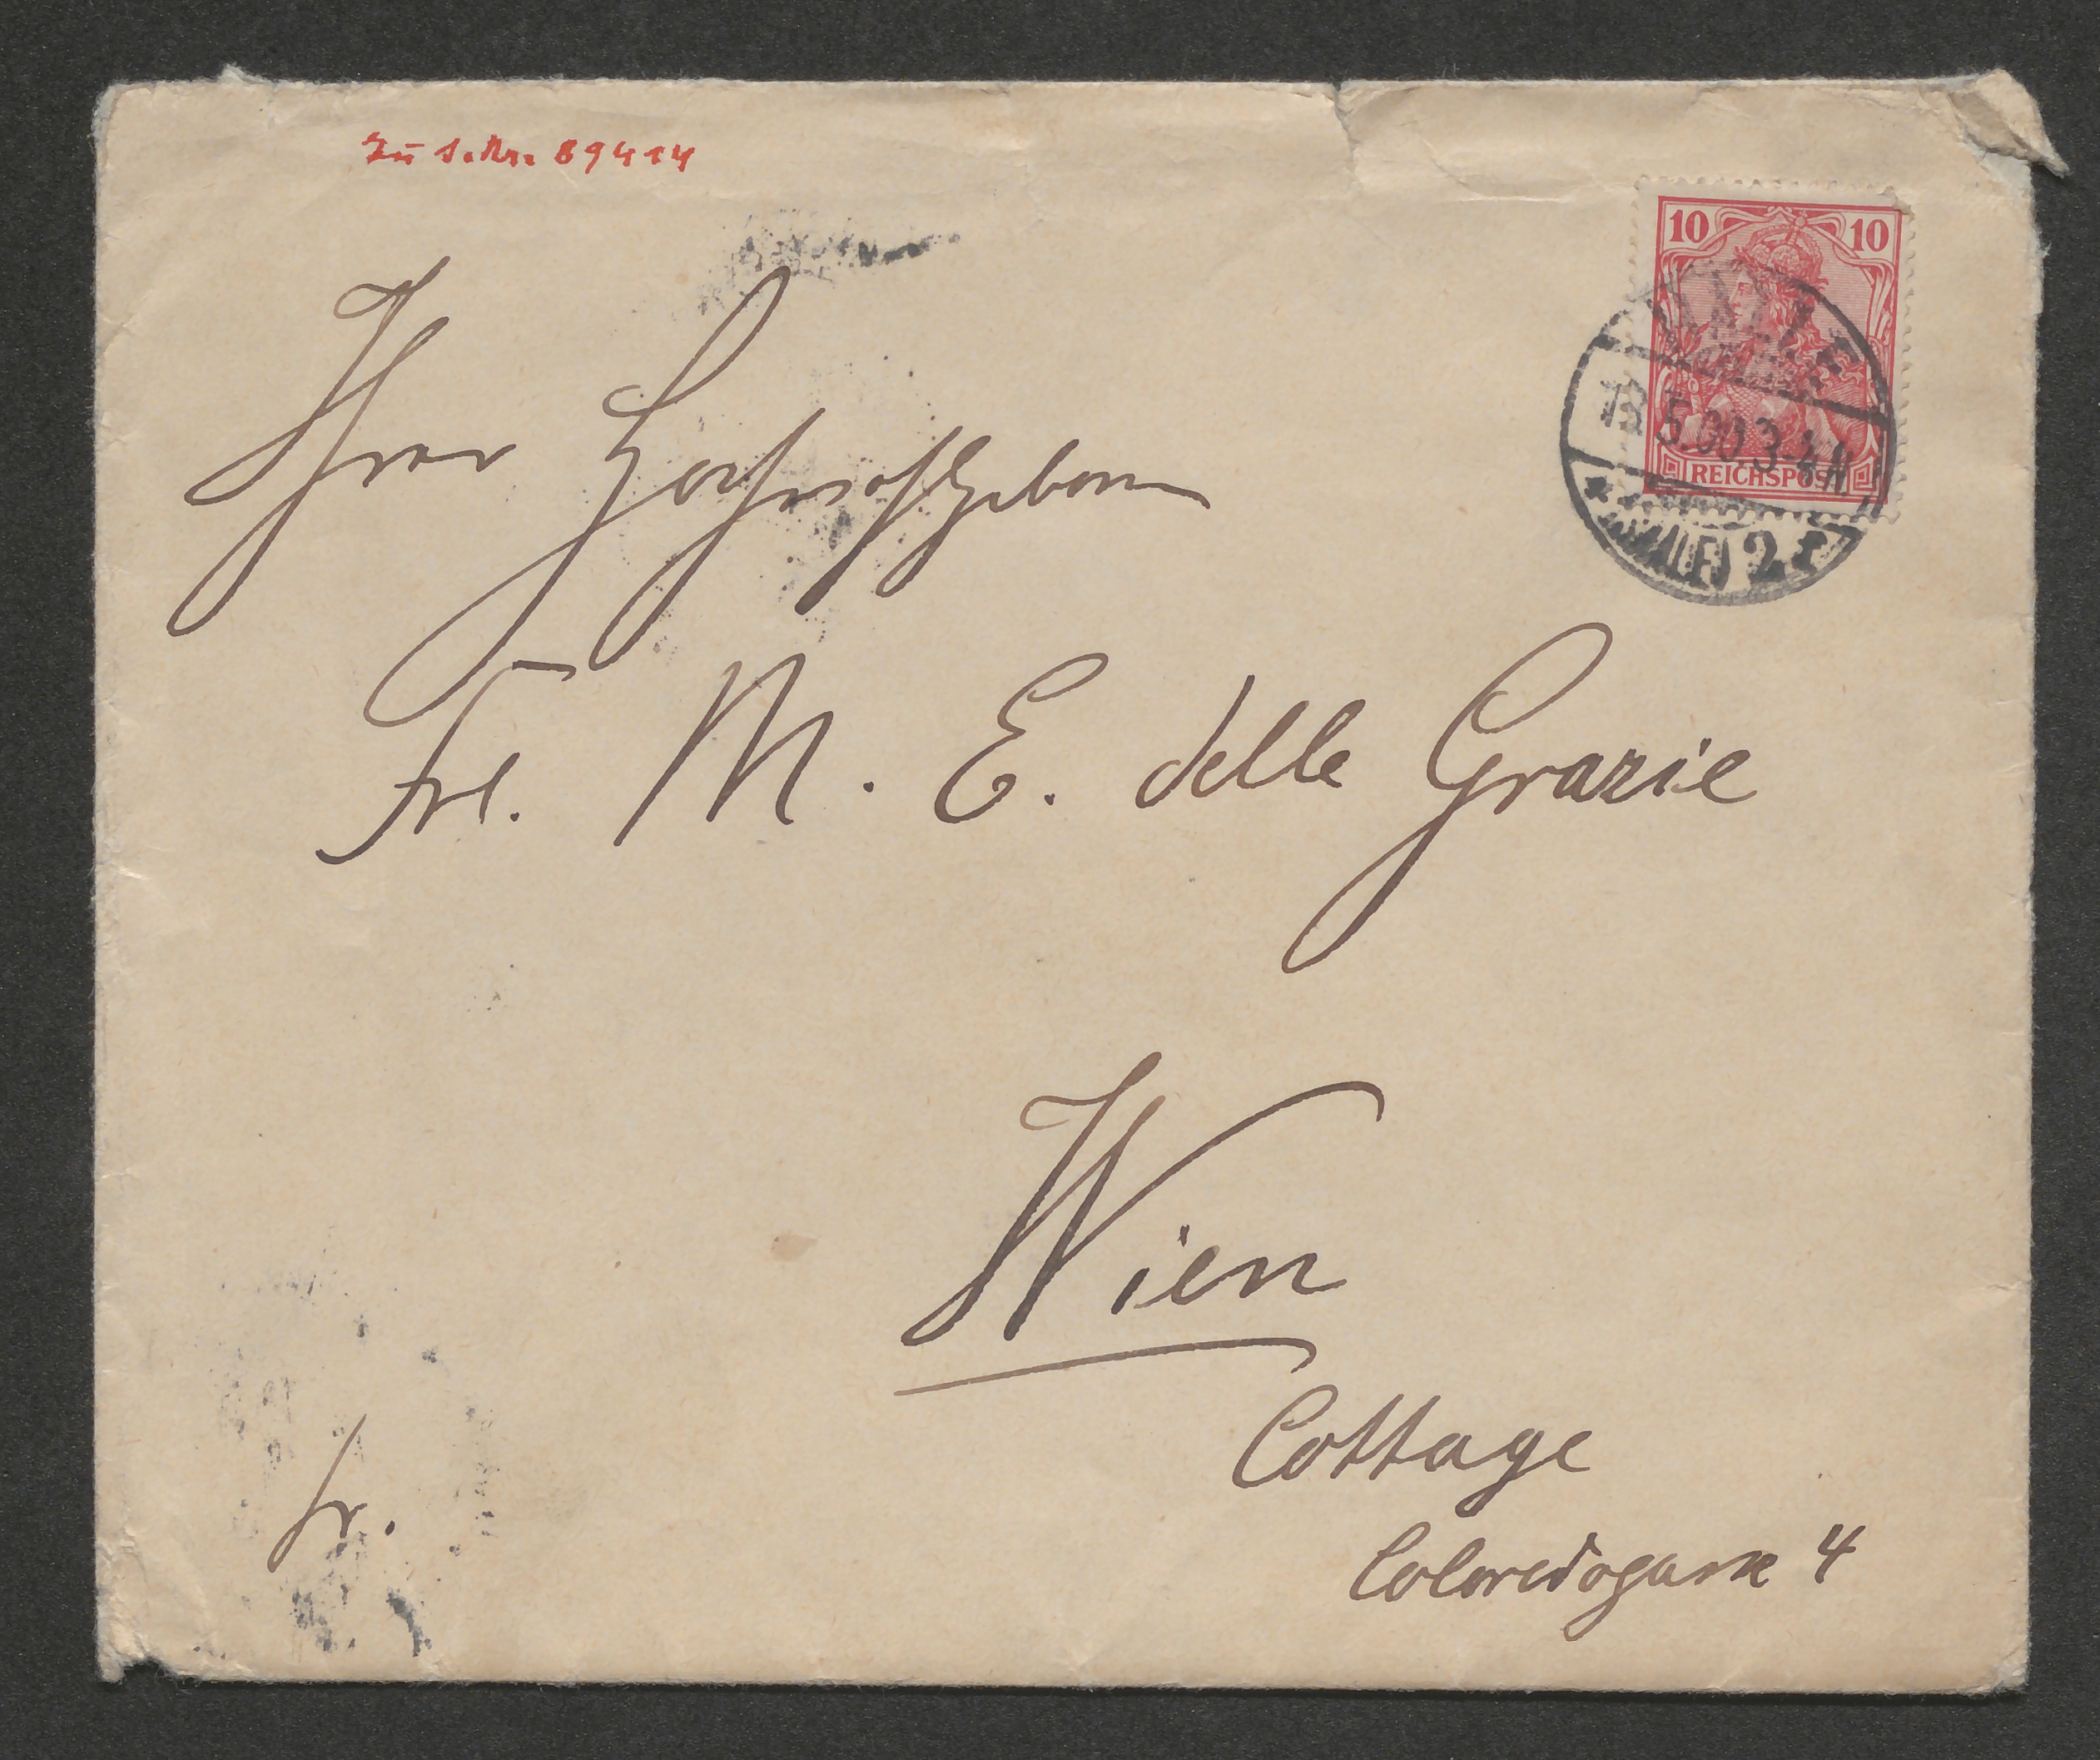 Zu I.Nr. 89414
10 10
REICHSPOST
HALLE
13 5.00 3-4 N.
(SAALE) 2 r
Ihrer Hochwohlgeboren
Frl. M. E. delle Grazie
Wien
Cottage
Coloredogasse 4
fr.